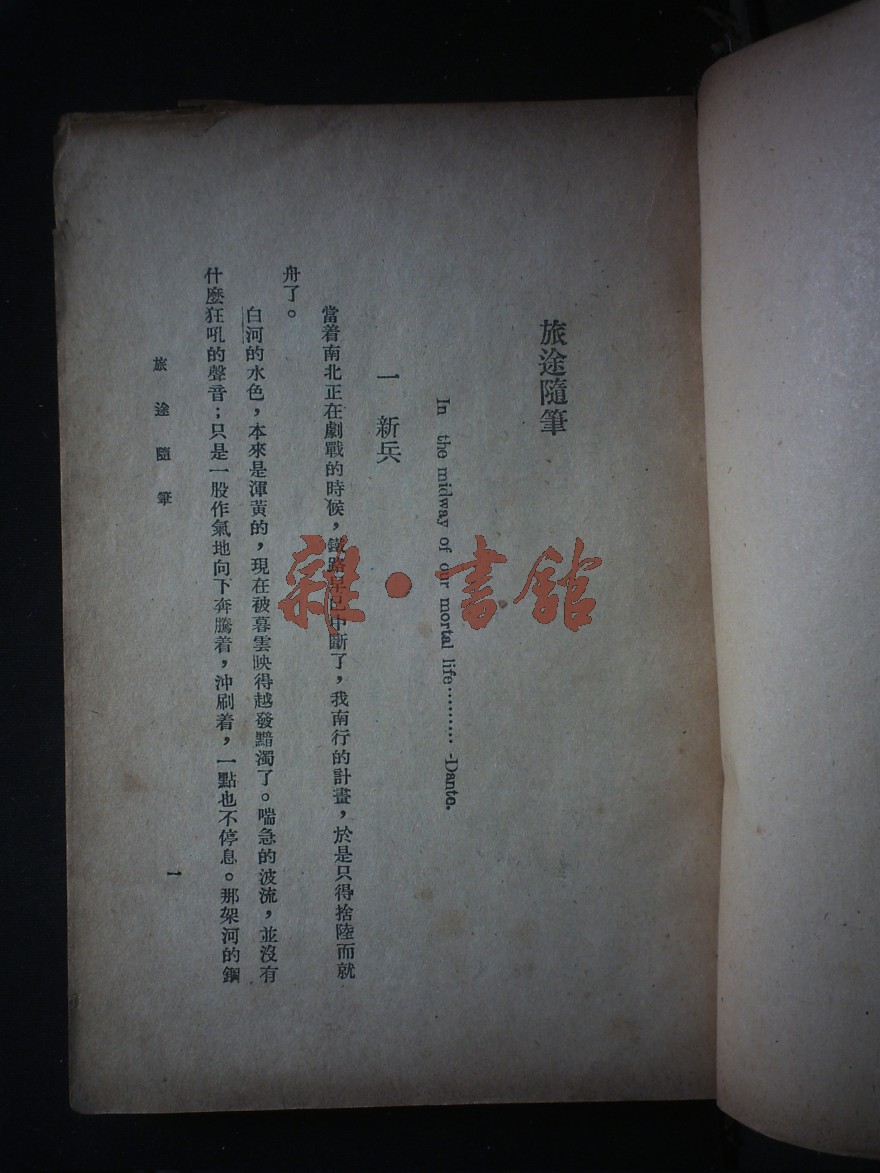 旅途隨筆
In the midway of our mortal life………-Dante.
一 新兵
當着南北正在劇戰的時候，鐵路早已中斷了，我南行的計畫，於是只得捨陸而就
舟了。
白河的水色，本來是渾黃的，現在被暮雲映得越發黯濁了。喘急的波流，並沒有
什麽狂吼的聲音；只是一股作氣地向下奔騰着，沖刷着，一點也不停息。那架河的鋼
旅途隨筆
一
雜·書館